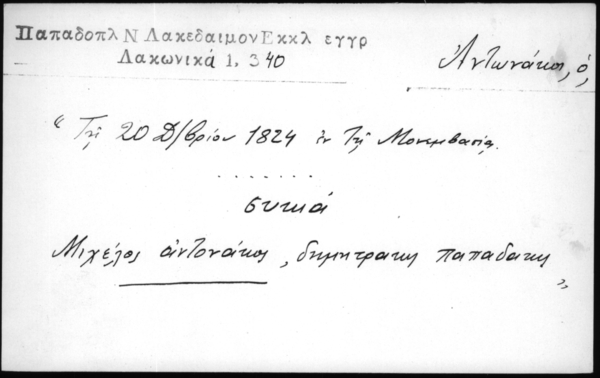 Παπαδοπλ Ν Λακεδαιμον Εκκλ εγγρ
Λακωνικά 1, 340
Ἀντωνάκος, ὁ,
“ Τῇ 20 Δ/βρίου 1824 ἐν τῇ Μονεμβασίᾳ.
.......
συκιά
Μιχέλος ἀντονάκος, δημητρακη παπαδακη „